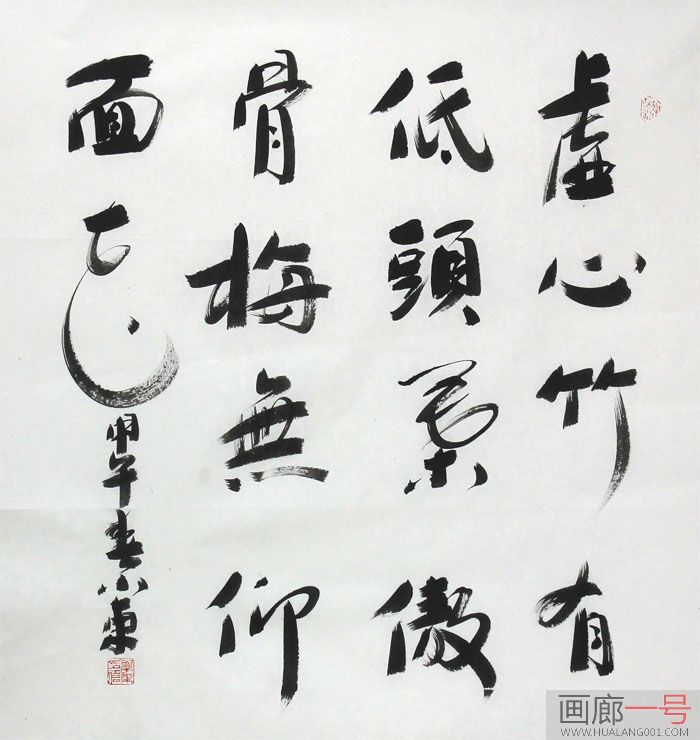 虚心竹有
低頭葉傲
骨梅無仰
面花
甲午春小
画廊一号
WWW.HUALANG001.COM